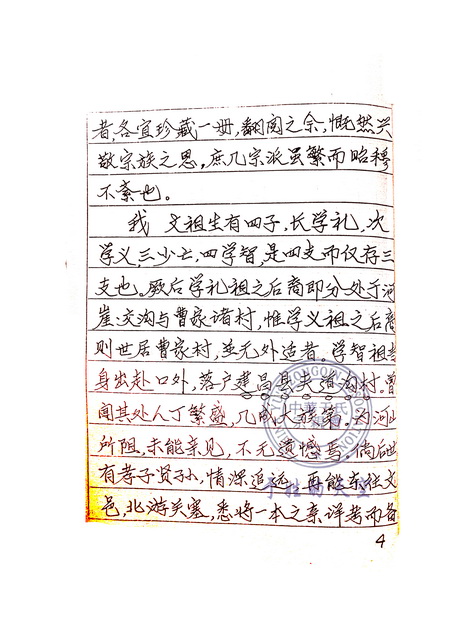 者,各宜珍藏一册,翻阅之余,慨然兴
敬宗族之思,庶几宗派虽繁而昭穆
不紊也。
我 文祖生有四子,长学礼,次
学义,三少亡,四学智,是四支而仅存三
支也。厥后学礼祖之后裔即分处于河
崖:交沟与曹家诸村,惟学义祖之后裔
则世居曹家村,並无外适者。学智祖
身出赴口外,落户建昌县夹道沟村。曾
闻其处人丁繁盛,几成大族第。为河山
所阻,未能亲见,不无遗憾焉。倘后世
有孝子贤孙,情深追远,再能东往文
邑,北游关塞,悉将一本之亲详考而备
4